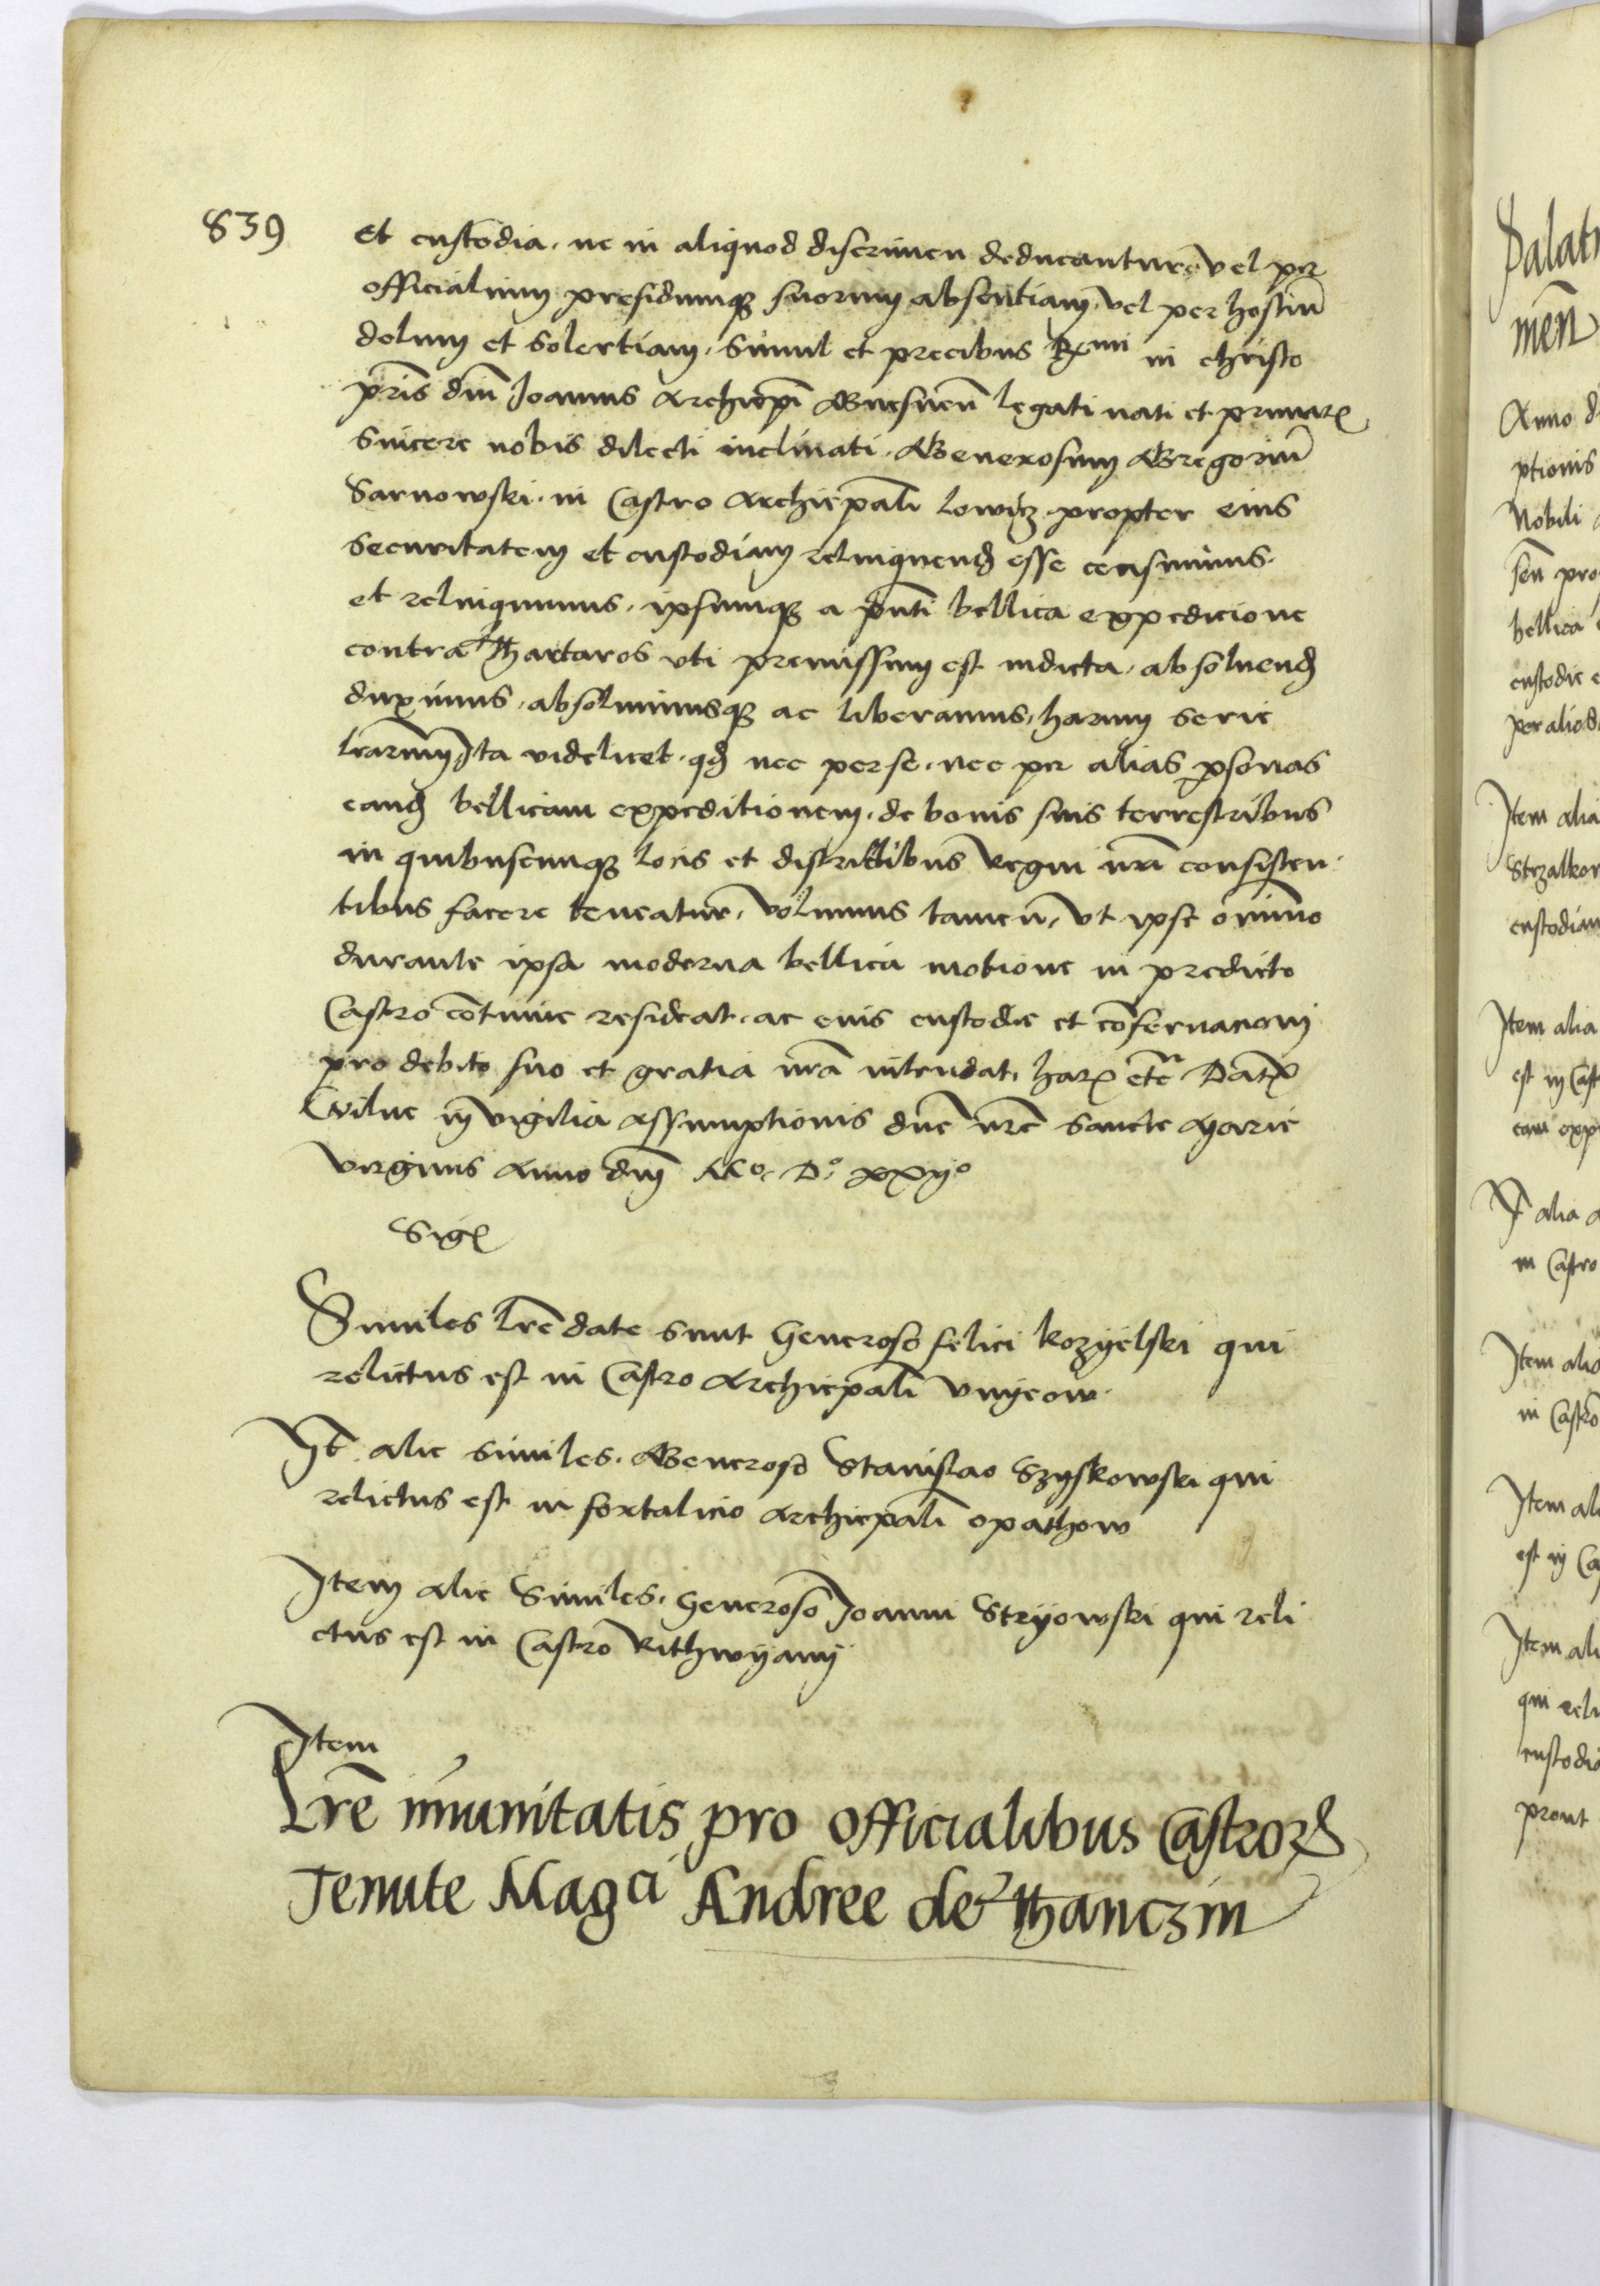 839
et custodia, ne in aliquod discrimen deducantur, vel per
officialium presidumq suorum absentiam, vel per hostiū
dolum et solertiam, simul et precibus Rmi in christo
pris dni Joannis Archiepi Gnesnen legati nati et primatis
sincere nobis dilecti inclinati, Generosum Gregoriū
Sarnowski, in Castro Archiepali Lowicz propter eius
securitatem et custodiam relinquend esse censuimus,
et relinquimus, ipsumq a pnti bellica expedicione
contra Thartaros vti premissum est indicta, absoluend
duximus, absoluimusq ac liberamus, harum serie
lrarum, Ita videlicet, qd nec per se, nec per alias psonas
eand bellicam expeditionem, de bonis suis terrestribus
in quibuscumq locis et districtibus Regni nri consisten
tibus facere teneatur, Volumus tamen, vt ipse omnino
durante ipsa moderna bellica motione in predicto
Castro continue resideat, ac eius custodie et conseruacioni
pro debito suo et gratia nra intendat, harz etc Datz
Wilne in vigilia Assumptionis dne nre sancte Marie
virginis Anno dnj Mo. Do. xxijo
Sigl
Similes lre date sunt Generoso felici kozyelski qui
relictus est in Castro Archiepali vnyeow.
It alie similes, Generoso Stanislao Szyskowski qui
relictus est in fortalicio Archiepali opathow
Item alie Similes, Generoso Joanni Stryowski qui reli
ctus est in Castro Rithwyany
Item
Lre imunitatis pro officialibus Castror
Tenute Magci Andree de Thanczin
Palati
men
Anno d
ptionis
Nobili
sen pro
bellica
custodie e
per alios
Item alia
Strzalkow
custodiam
Item alia
est in Cast
eam exp
It alia a
in Castro
Item alia
in Castro
Item ali
est in Ca
Item ali
qui reli
custodia
prout